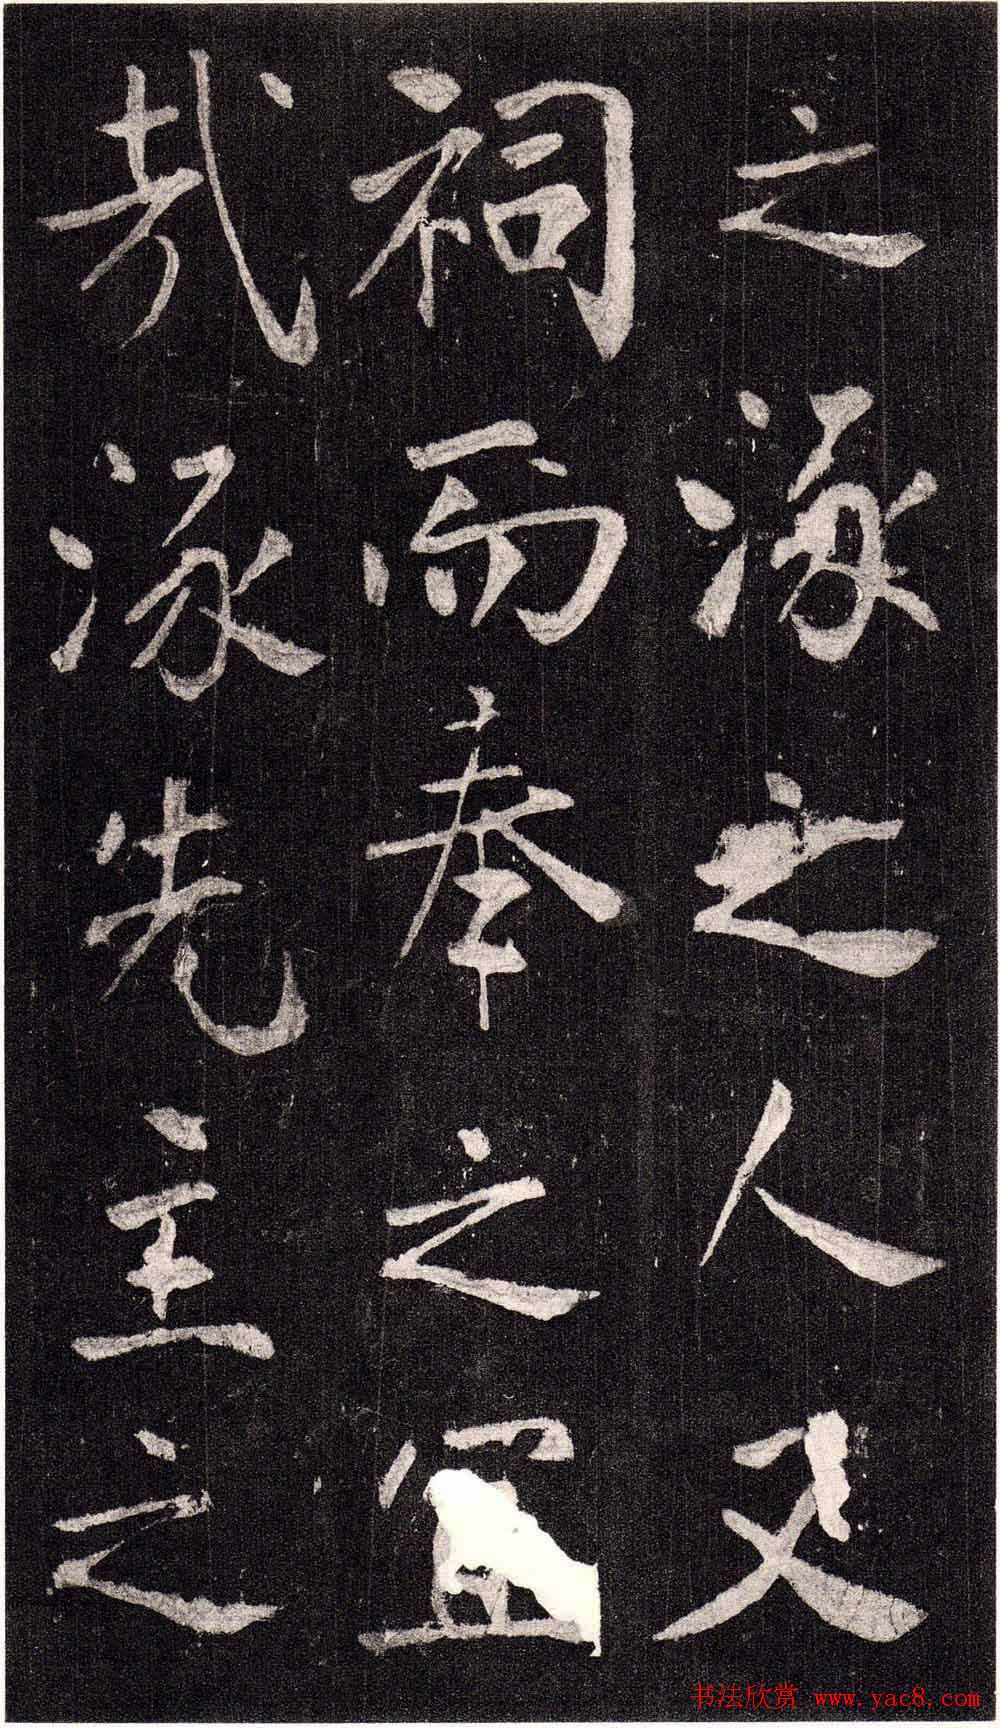 之涿之人又
祠而奉之宜
哉涿先主之
书法欣赏 www.yac8.com